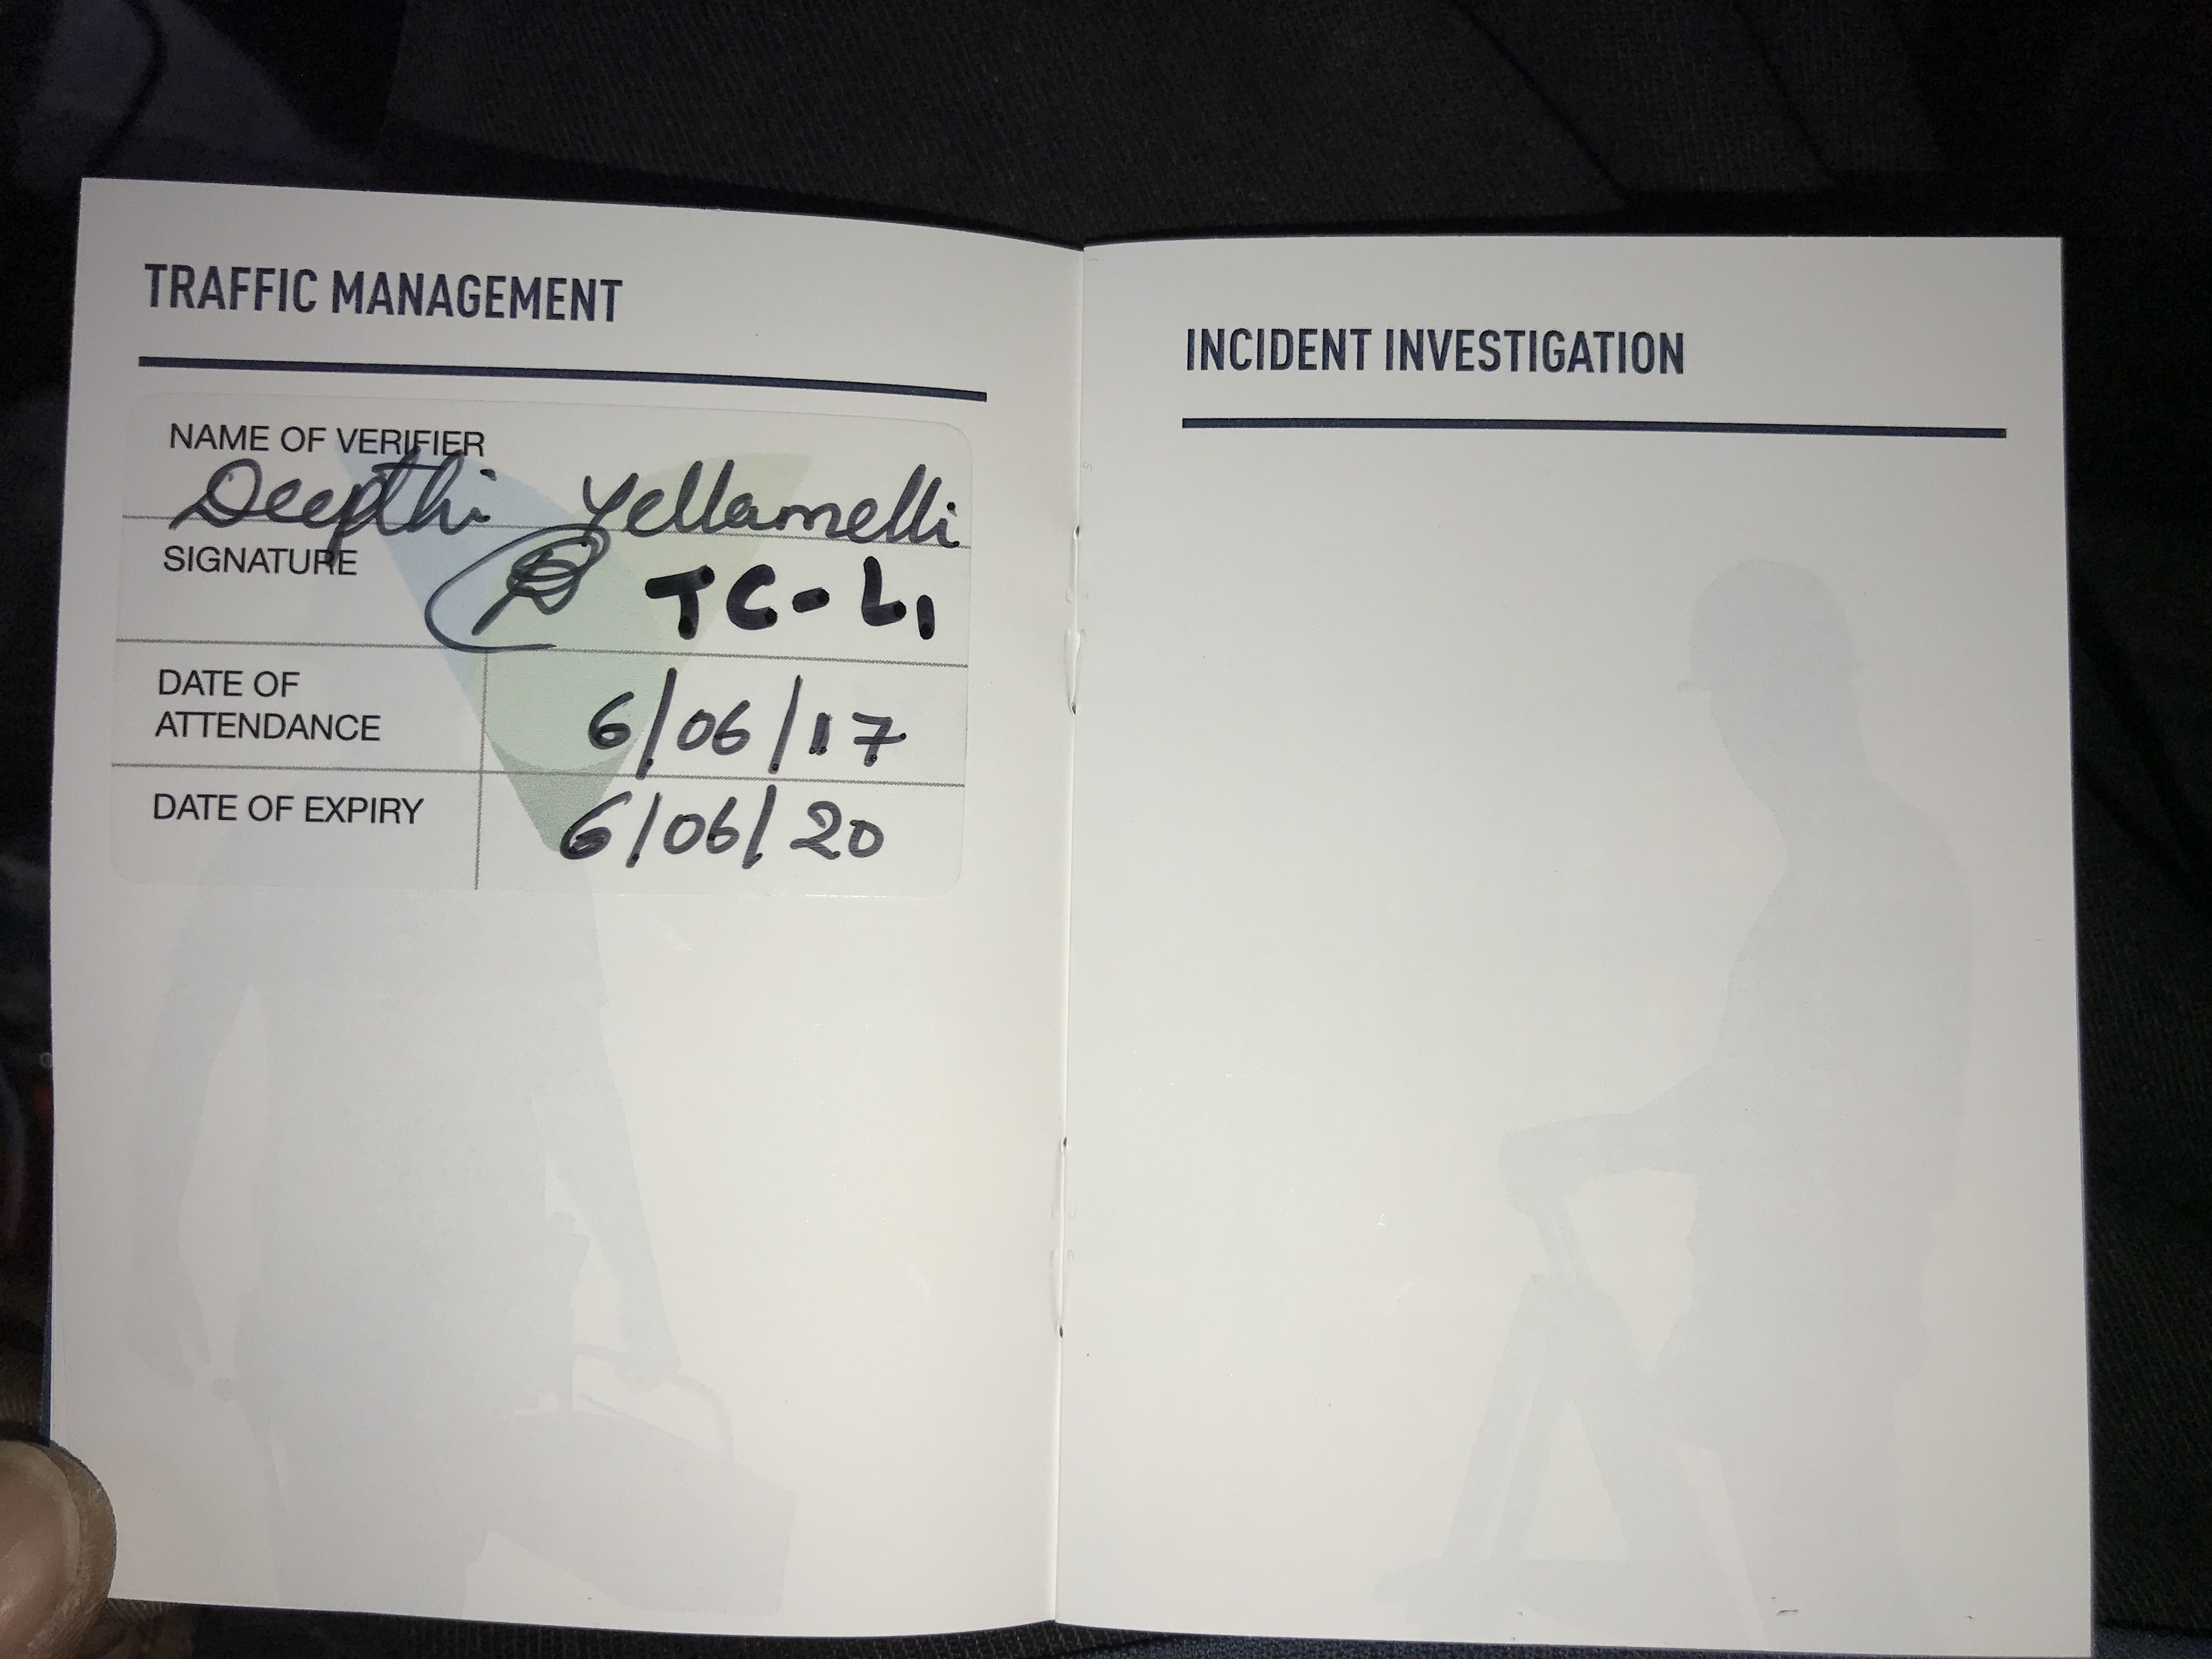 TRAFFIC MANAGEMENT
NAME OF VERIFIER
Deepthi Yellamelli
SIGNATURE
TC-L1
DATE OF
ATTENDANCE
6/06/17
DATE OF EXPIRY
6/06/20
INCIDENT INVESTIGATION